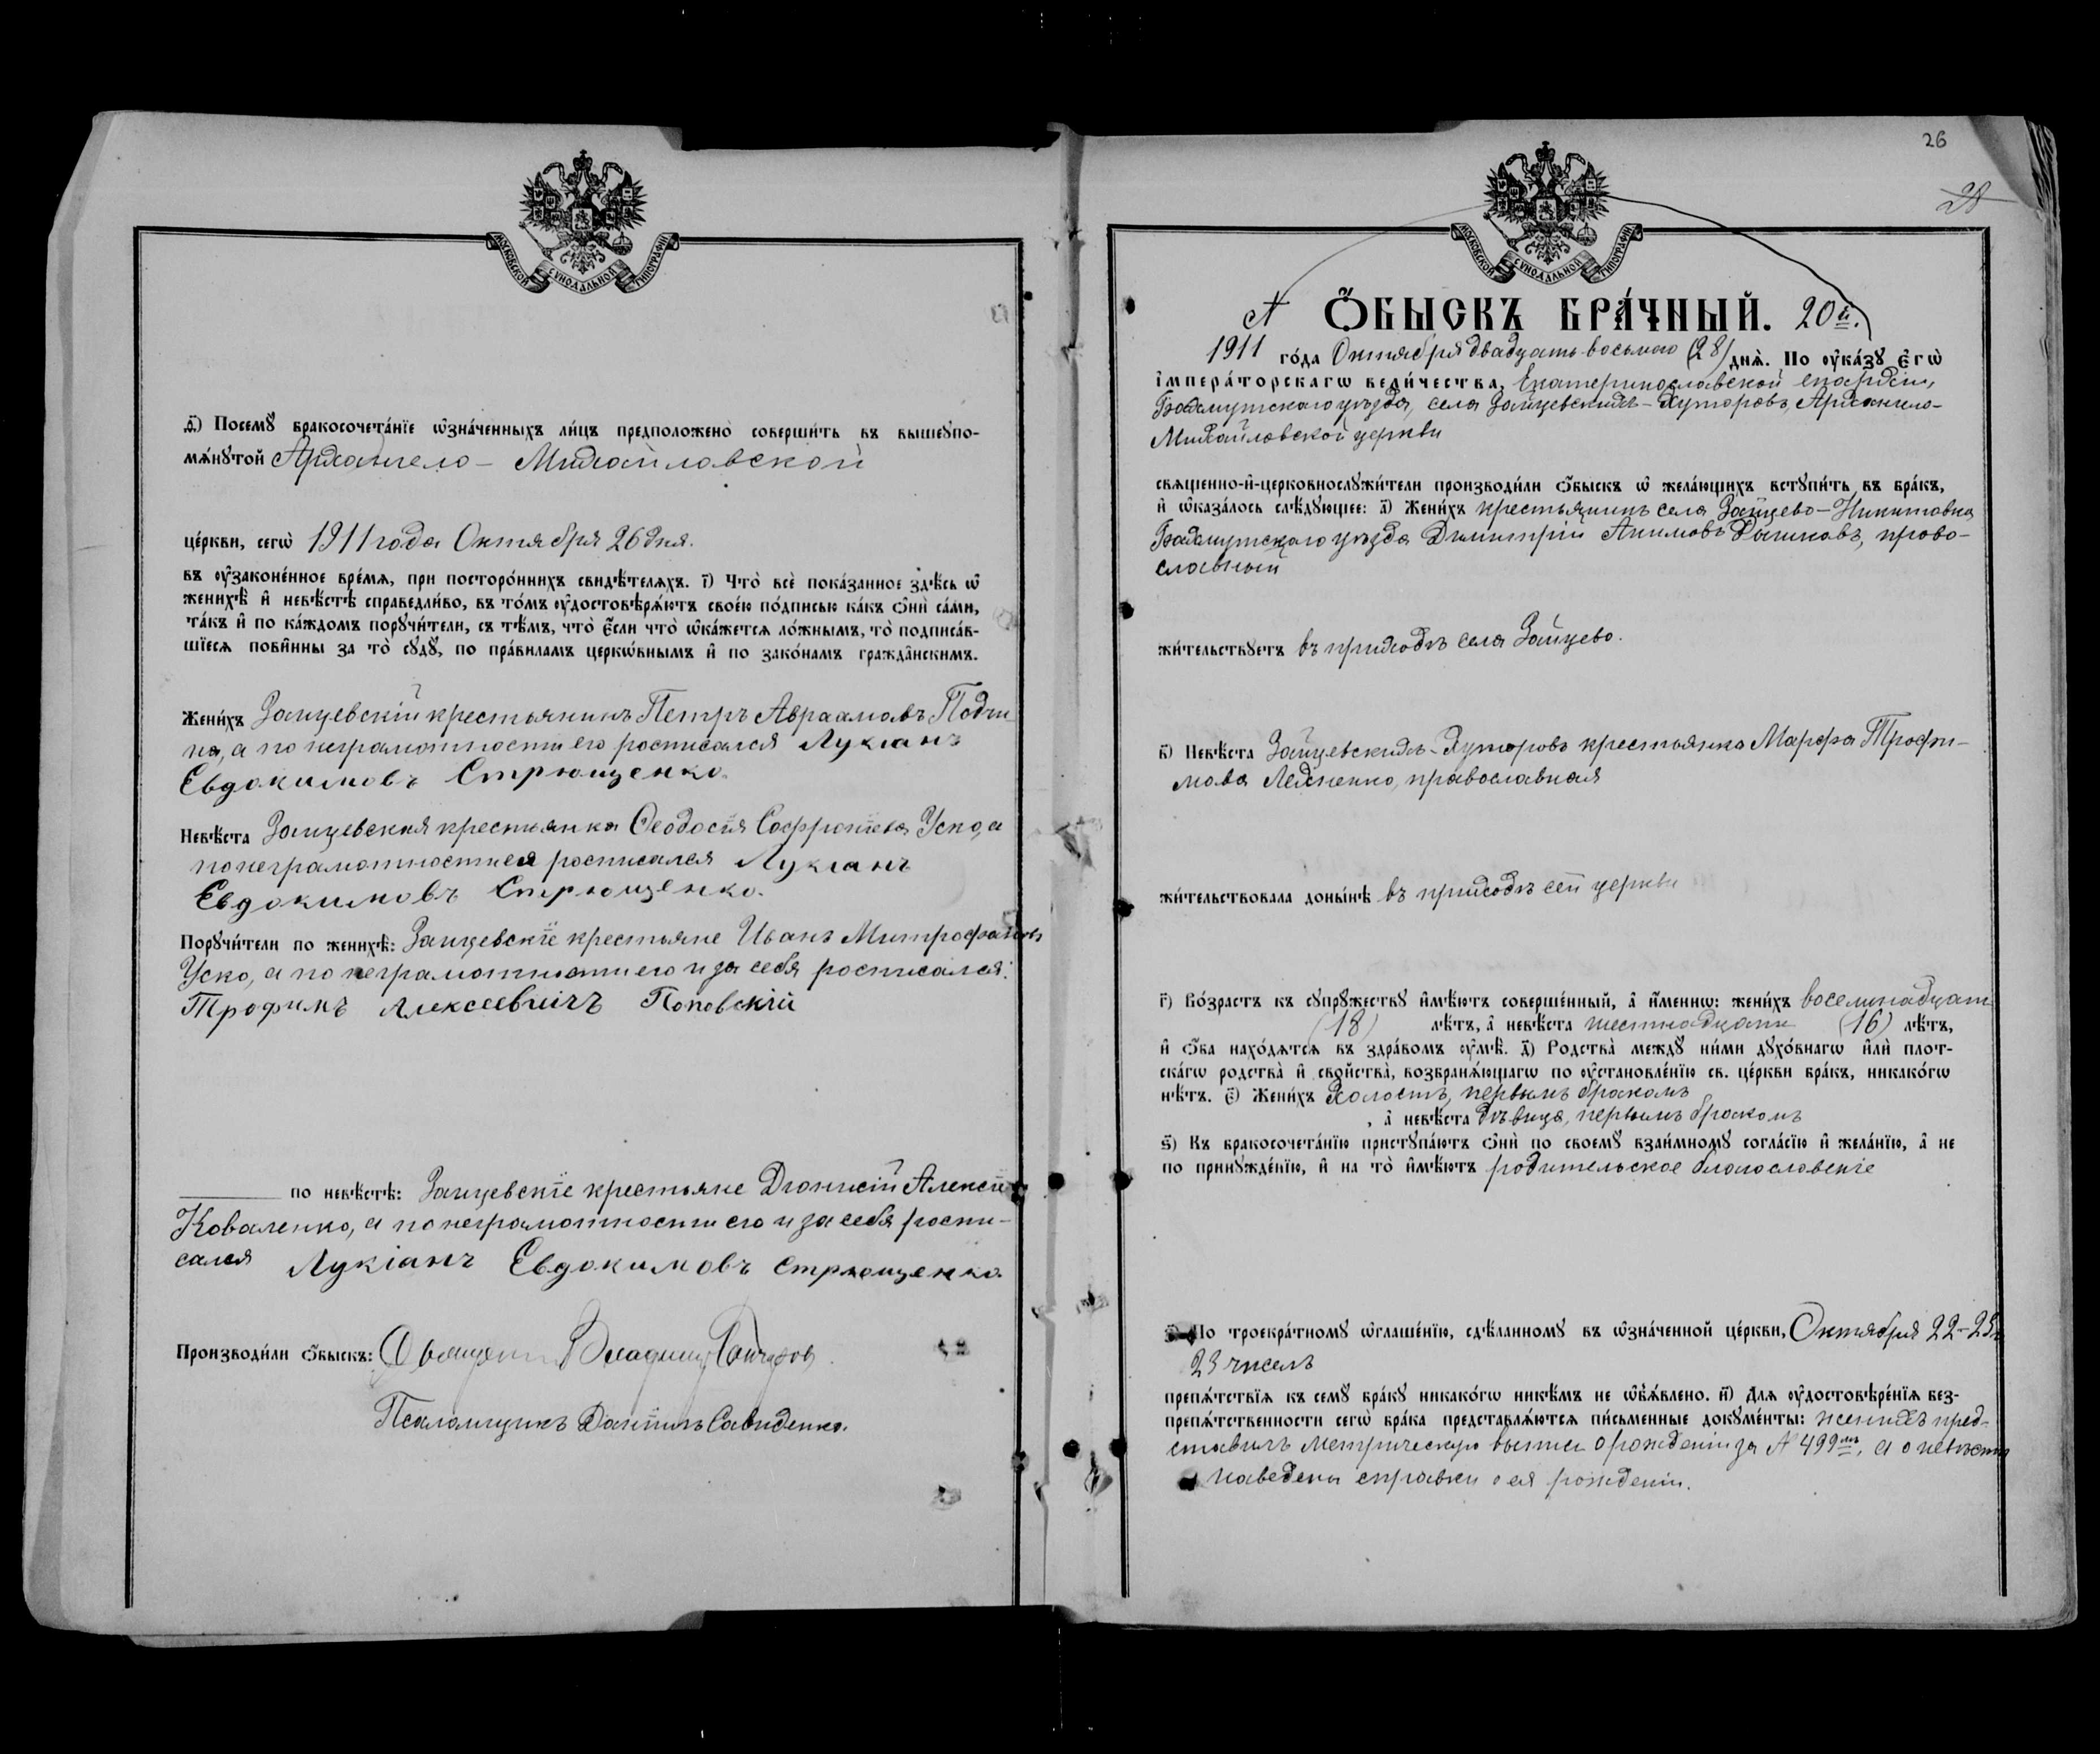 МОСКОВСКОЙ СУНОДАЛЬНОЙ ТИПОГРАФІИ
д҃) Посемꙋ̀ бракосочета́нїе ѡ҆зна́ченныхъ ли́цъ предположено̀ соверши́ть въ вышеꙋпо-
мѧ́нꙋтой Архангело-Михайловской
це́ркви, сегѡ̀ 1911 года Октября 26 дня.
въ ᲂу҆законе́нное вре́мѧ, при посторо́ннихъ свидѣ́телѧхъ. і҃) Что̀ всѐ пока́занное здѣ́сь ѡ҆
женихѣ̀ и҆ невѣ́стѣ справедли́во, въ то́мъ ᲂу҆достовѣрѧ́ютъ свое́ю по́дписью ка́къ ѻ҆нѝ са́ми,
та́къ и҆ по ка́ждомъ порꙋчи́тели, съ тѣ́мъ, что̀ є҆́сли что̀ ѡ҆ка́жетсѧ ло́жнымъ, то̀ подписа́в-
шїесѧ пови́нны за то̀ сꙋдꙋ̀, по пра́виламъ церкѡ́внымъ и҆ по зако́намъ гражда́нскимъ.
Жени́хъ Зайцевскій крестьянинъ Петръ Авраамовъ
а по неграмотности его росписался Лукіанъ
Евдокимовъ Стрющенко.
Невѣ́ста Зайцевская крестьянка Ѳеодосія Софроніева Уско, а
по неграмотности ея росписался Лукіанъ
Евдокимовъ Стрющенко.
Порꙋчи́тели по женихѣ̀: Зайцевскіе крестьяне Иванъ Митрофановъ
Уско, а по неграмотности его и за себя росписался:
Трофимъ Алексеевичъ Поповскій
по невѣ́стѣ: Зайцевскіе крестьяне Діонисій
Коваленко, а по неграмотности его и за себя роспи-
сался Лукіанъ Евдокимовъ Стрющенко.
Производи́ли ѻ҆́быскъ: Священникъ Владимиръ
Псаломщикъ Даніилъ Савиденко.
26
28
МОСКОВСКОЙ СУНОДАЛЬНОЙ ТИПОГРАФІИ
ѺБЫСКЪ БРА́ЧНЫЙ. 20й.
1911 го́да Октября двадцать восьмого (28) днѧ̀. По ᲂу҆ка́зꙋ є҆гѡ̀
і҆мпера́торскагѡ вели́чества, Екатеринославской епархіи,
Бахмутскаго уѣзда, села Зайцевскихъ-Хуторовъ, Архангело-
Михайловской церкви
свѧщенно-и҆-церковнослꙋжи́тели производи́ли ѻ҆́быскъ ѡ҆ жела́ющихъ встꙋпи́ть въ бра́къ,
и҆ ѡ҆каза́лось слѣ́дꙋющее: а҃) Жени́хъ крестьянинъ села Зайцево-Никитовка
Бахмутскаго уѣзда Димитрій Акимовъ Дашковъ, право-
славный
жи́тельствꙋетъ въ приходѣ села Зайцево.
в҃) Невѣ́ста Зайцевскихъ-Хуторовъ крестьянка Марфа Трофи-
мова Лехненко, православная
жи́тельствовала доны́нѣ въ приходѣ сей церкви
г҃) Во́зрастъ къ сꙋпрꙋ́жествꙋ и҆мѣ́ютъ соверше́нный, а҆ и҆́менно: жени́хъ восемнадцать
(18) лѣ́тъ, а҆ невѣ́ста шестнадцать (16) лѣ́тъ,
и҆ ѻ҆́ба нахо́дѧтсѧ въ здра́вомъ ᲂу҆мѣ̀. д҃) Родства̀ междꙋ̀ ни́ми дꙋхо́внагѡ и҆лѝ плот-
ска́гѡ родства̀ и҆ сво́йства̀, возбранѧ́ющагѡ по ᲂу҆становле́нїю св. це́ркви бра́къ, никако́гѡ
нѣ́тъ. є҃) Жени́хъ холостъ, первымъ бракомъ
, а҆ невѣ́ста дѣвица, первымъ бракомъ
ѕ҃) Къ бракосочета́нїю пристꙋпа́ютъ ѻ҆нѝ по своемꙋ̀ взаи́мномꙋ согла́сїю и҆ жела́нїю, а҆ не
по принꙋжде́нїю, и҆ на то̀ и҆мѣ́ютъ родительское благословеніе
По троекра́тномꙋ ѡ҆глаше́нїю, сдѣ́ланномꙋ въ ѡ҆зна́ченной це́ркви, Октября 22-
23 чиселъ
препѧ́тствїѧ къ семꙋ̀ бра́кꙋ никако́гѡ никѣ́мъ не ѡ҆б̾ѧ́влено. и҃) Длѧ ᲂу҆достовѣре́нїѧ без-
препѧ́тственности сегѡ̀ бра́ка представлѧ́ютсѧ пи́сьменные докꙋме́нты: женихъ пред-
ставилъ метрическую выпись о рожденіи за № 499мъ, а о невѣстѣ
наведены справки о ея рожденіи.